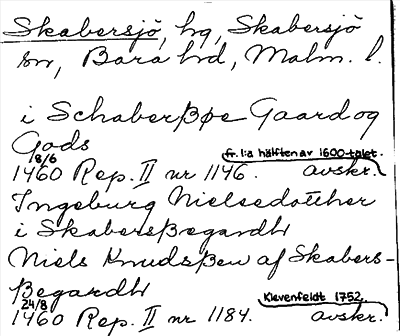 Skabersjö, hg, Skabersjö
sn, Bara hd, Malm. l.
i Schaberßøe Gaard og
Gods
8/6 fr. 1:a hälften av 1600-talet.
1460 Rep. II nr 1146. avskr.
Ingeburg Nielsedotther
i Skabersßegardh
Niels Knudsßen af Skabers-
ßegardh
24/8 Klevenfeldt 1752.
1460 Rep. II nr 1184. avskr.